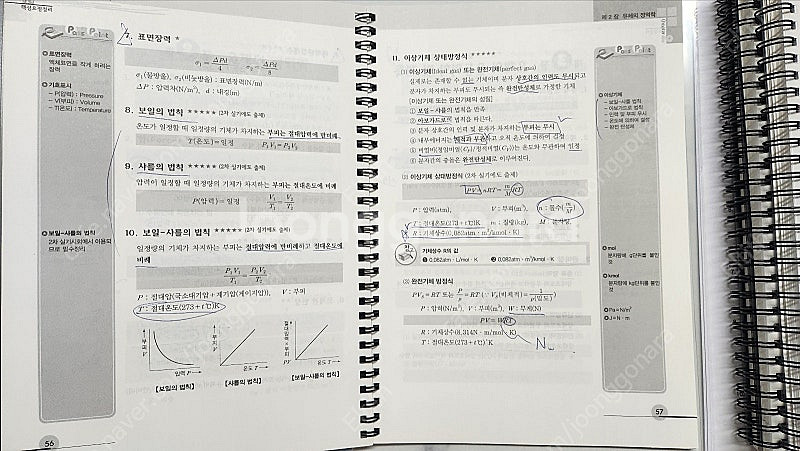 핵심요점정리
Pass Point
표면장력
액체표면을 작게 하려는 장력
기호표시
- P(압력) : Pressure
- V(부피) : Volume
- T(온도) : Temperature
보일-샤를의 법칙
2차 실기시험에서 이용되므로 필수정리
7. 표면장력 ★
σ₁ = ΔPd/4 σ₂ = ΔPd/8
σ₁(물방울), σ₂(비눗방울) : 표면장력(N/m)
ΔP : 압력차(N/m²), d : 내경(m)
8. 보일의 법칙 ★★★★★ (2차 실기에도 출제)
온도가 일정할 때 일정량의 기체가 차지하는 부피는 절대압력에 반비례.
T(온도)=일정 P₁V₁=P₂V₂
9. 샤를의 법칙 ★★★★★ (2차 실기에도 출제)
압력이 일정할 때 일정량의 기체가 차지하는 부피는 절대온도에 비례
P(압력)=일정 V₁/T₁ = V₂/T₂
10. 보일-샤를의 법칙 ★★★★★ (2차 실기에도 출제)
일정량의 기체가 차지하는 부피는 절대압력에 반비례하고 절대온도에
비례
P₁V₁/T₁ = P₂V₂/T₂
P : 절대압(국소대기압+계기압(게이지압)), V : 부피
T : 절대온도(273+t℃)K
부피 V
압력 P
[보일의 법칙]
부피 V
온도 T
[샤를의 법칙]
절대압력×부피 PV
온도 T
[보일-샤를의 법칙]
56
제 2 장 유체의 정역학
11. 이상기체 상태방정식 ★★★★★
(1) 이상기체(Ideal gas) 또는 완전기체(perfect gas)
실제로는 존재할 수 있는 기체이며 분자 상호간의 인력도 무시되고
분자가 차지하는 부피도 무시되는 즉 완전탄성체로 가정한 기체
[이상기체 또는 완전기체의 성질]
① 보일-샤를의 법칙을 만족
② 아보가드로의 법칙을 따른다.
③ 분자 상호간의 인력 및 분자가 차지하는 부피는 무시
④ 내부에너지는 체적과 무관하고 오직 온도에 의하여 결정
⑤ 비열비는 온도와 무관하며 일정
⑥ 분자간의 충돌은 완전탄성체로 이루어진다.
(2) 이상기체 상태방정식 (2차 실기에도 출제)
PV=nRT= m/M RT
P : 압력(atm), V : 부피(m³), n : 몰수(m/M)
T : 절대온도(273+t℃)K m : 질량(kg), M : 분자량,
R : 기체상수(0.082atm·m³/kmol·K)
기체상수 R의 값
❶ 0.082atm·L/mol·K ❷ 0.082atm·m³/kmol·K
(3) 완전기체 방정식
PVₛ=RT 또는 P/ρ=RT (∵ Vₛ(비체적)= 1/ρ(밀도))
P : 압력(N/m²), V : 부피(m³), W : 무게(N)
PV=WRT
T : 절대온도(273+t℃)°K
N
Pass Point
이상기체
- 보일-샤를의 법칙
- 아보가드로 법칙
- 인력 및 부피 무시
- 온도에 의하여 결정
- 완전 탄성체
mol
분자량에 g단위를 붙인 것
kmol
분자량에 kg단위를 붙인 것
Pa=N/m²
J=N·m
57